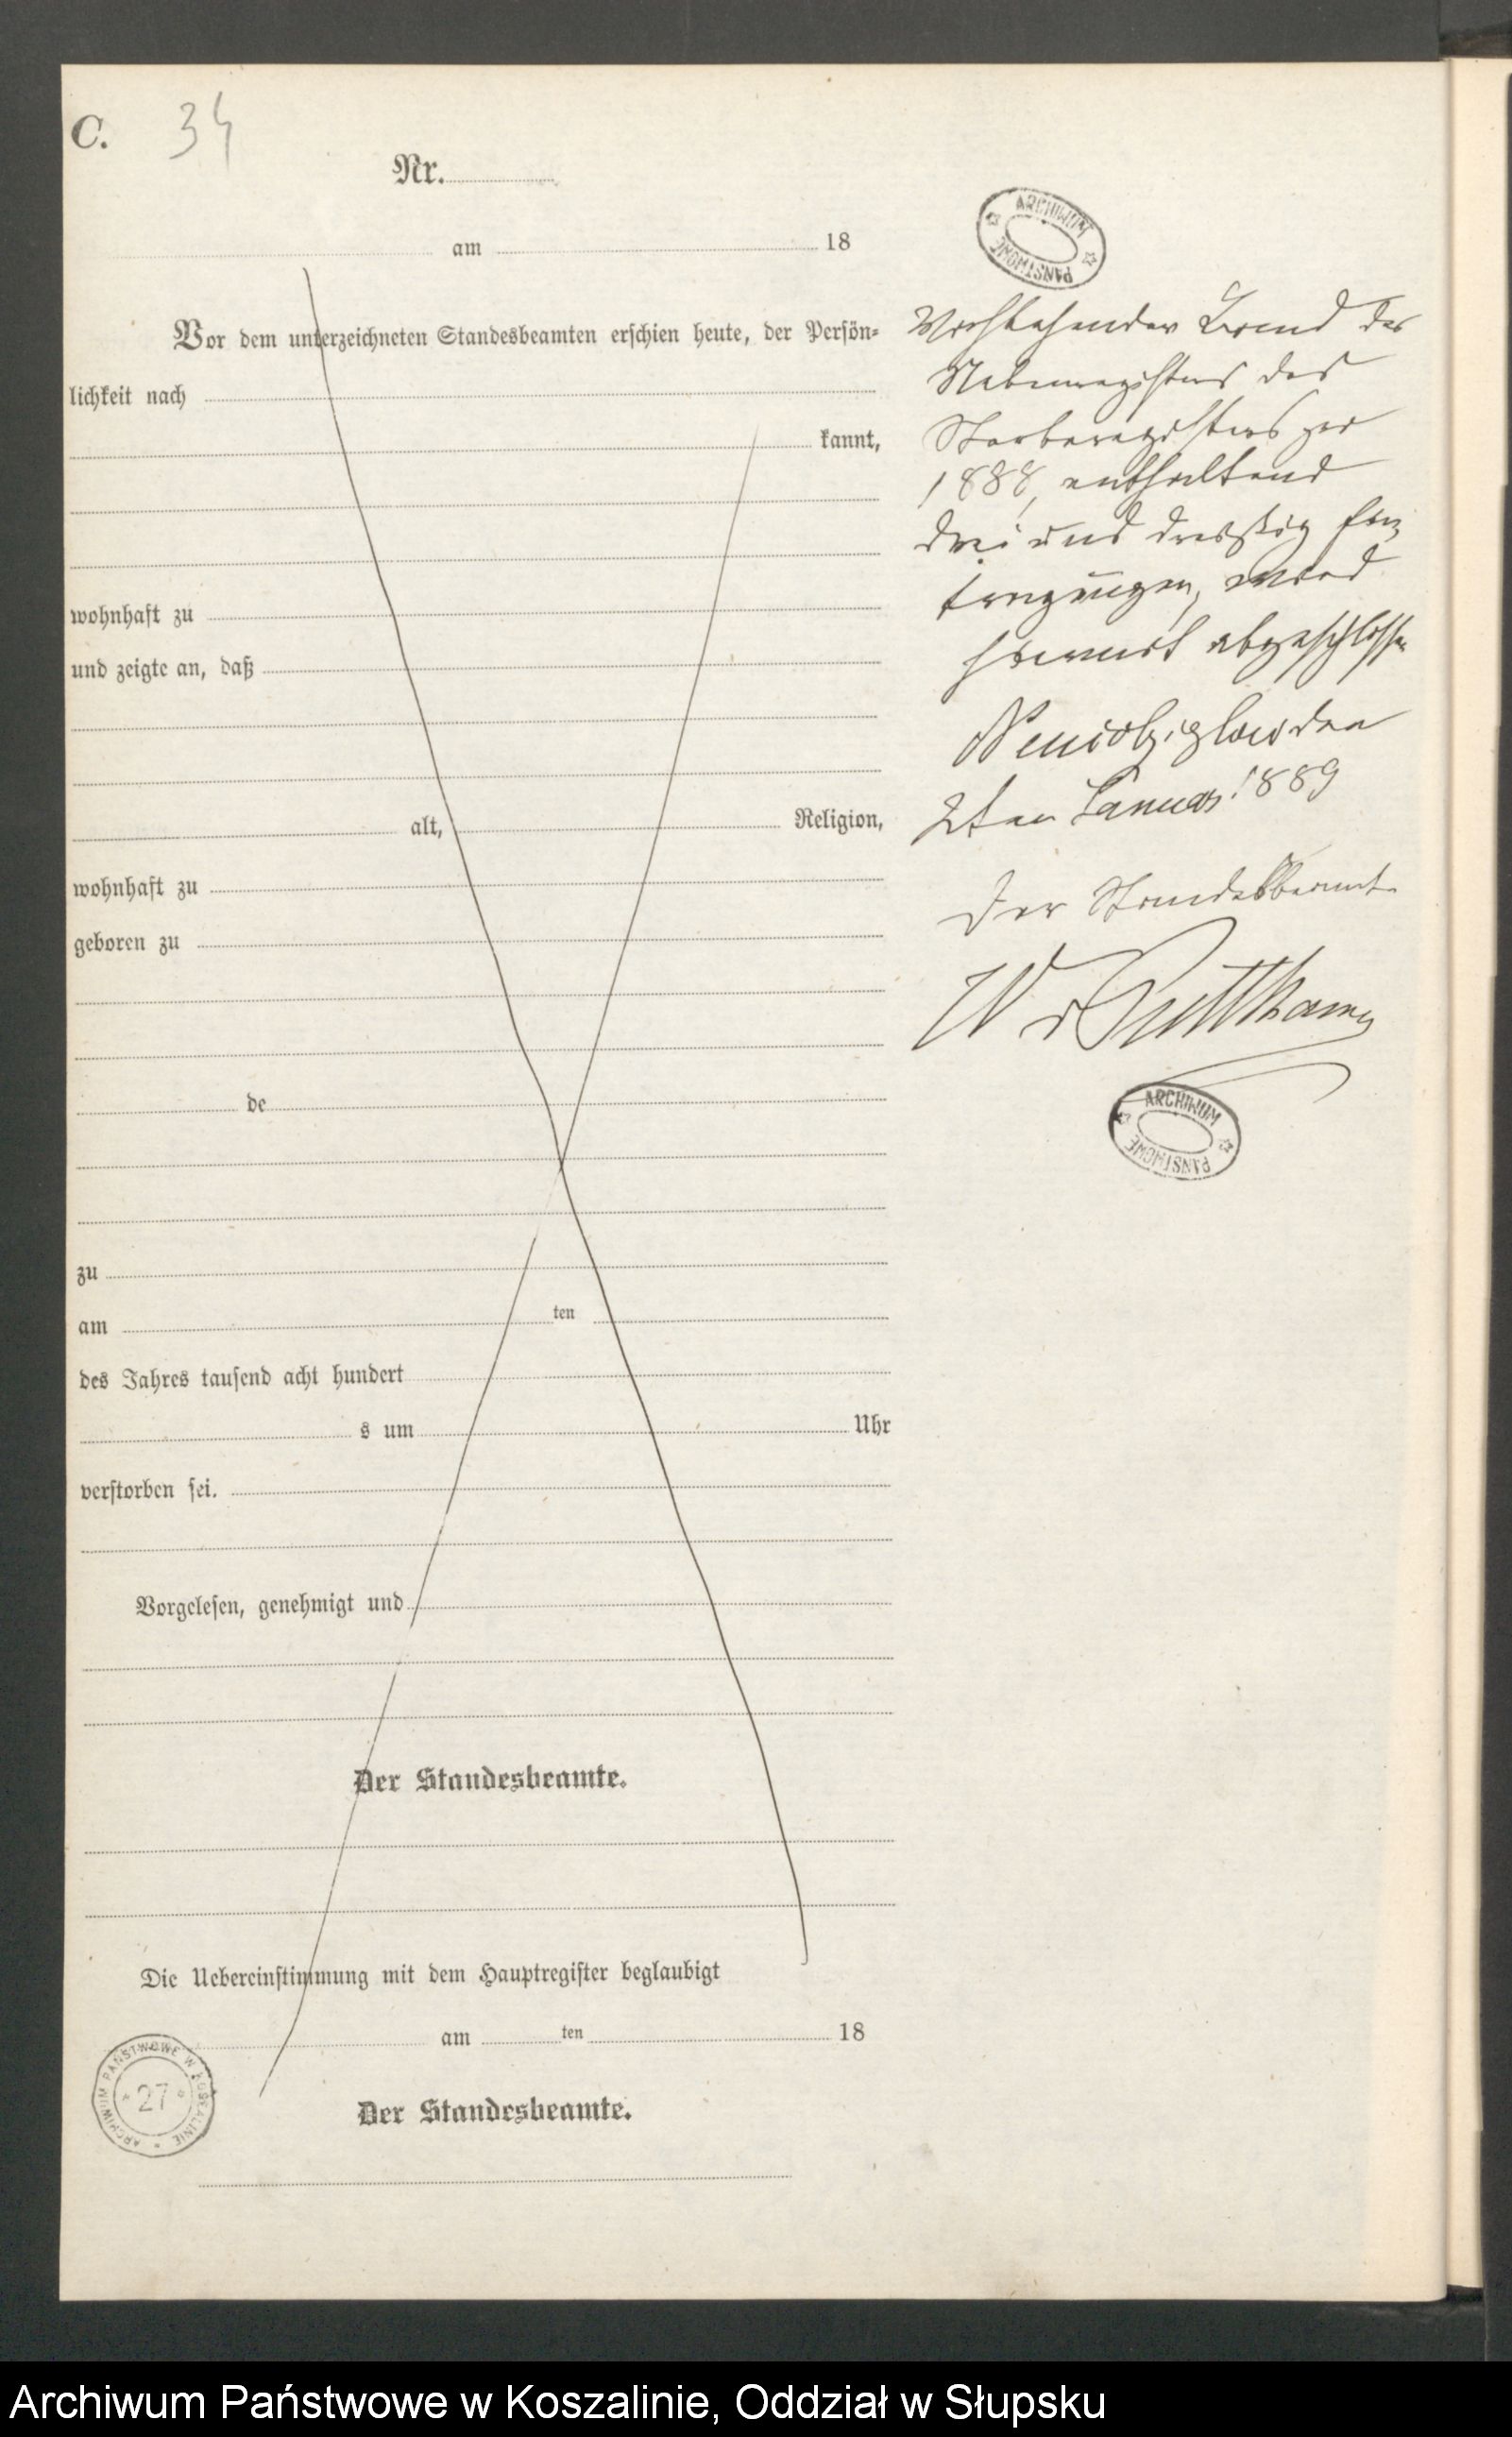 C. 34
Nr.
am 18
Vor dem unterzeichneten Standesbeamten erschien heute, der Persön-
lichkeit nach
kannt,
wohnhaft zu
und zeigte an, daß
alt, Religion,
wohnhaft zu
geboren zu
de
zu
am ten
des Jahres tausend acht hundert
s um Uhr
verstorben sei.
Vorgelesen, genehmigt und
Der Standesbeamte.
Die Uebereinstimmung mit dem Hauptregister beglaubigt
am ten 18
Der Standesbeamte.
ARCHIWUM PAŃSTWOWE W KOSZALINIE
27
ARCHIWUM PAŃSTWOWE
Vorstehender Band des
Nebenregisters des
Sterberegisters pro
1888, enthaltend
drei und dreißig Ein
tragungen, wird
hiermit abgeschlossen
den
2ten Januar 1889
Der Standesbeamte
W v Puttkamer
ARCHIWUM PAŃSTWOWE
Archiwum Państwowe w Koszalinie, Oddział w Słupsku